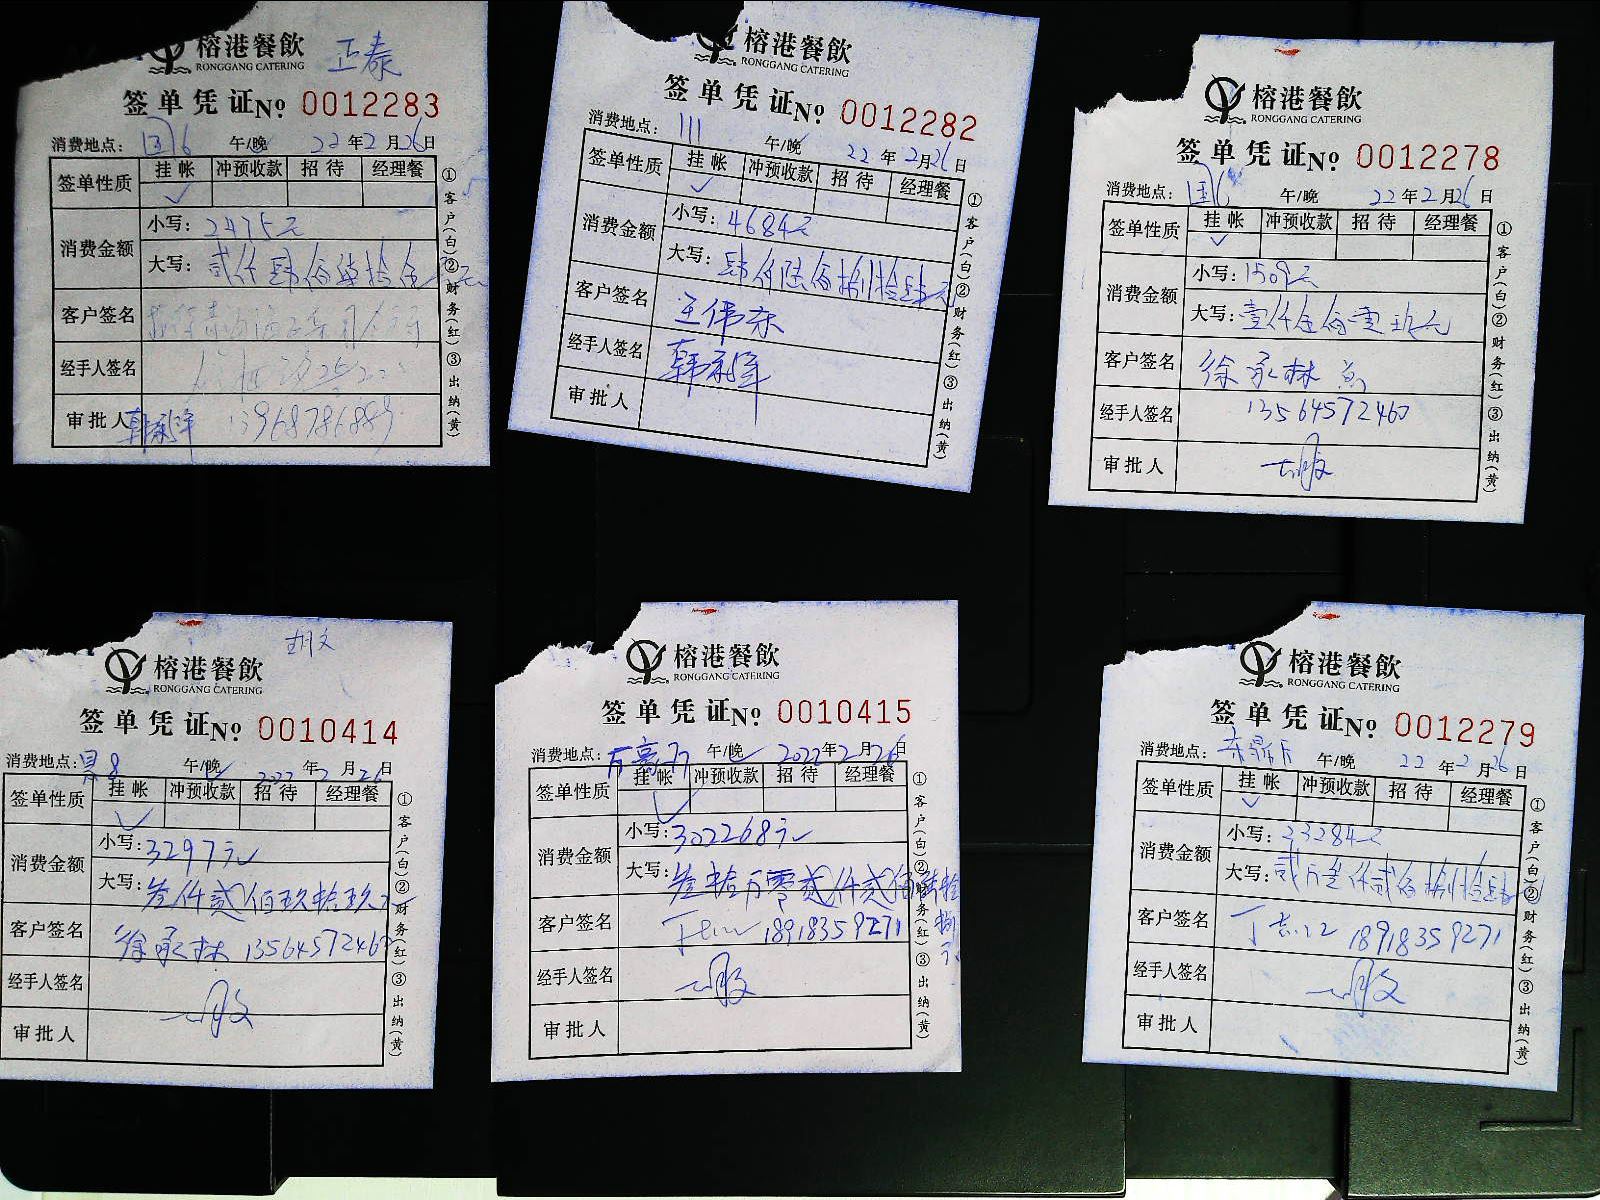 榕港餐飲 正泰
RONGGANG CATERING
签单凭证№ 0012283
消费地点： 国6 午/晚 22年2月26日
签单性质 挂帐 冲预收款 招待 经理餐
✓
消费金额 小写：2475元
大写：贰仟肆佰柒拾伍元
客户签名
经手人签名
审批人 韩承洋 13968786889
①客户(白)②财务(红)③出纳(黄)
榕港餐飲
RONGGANG CATERING
签单凭证№ 0012282
消费地点： 111 午/晚 22年2月26日
签单性质 挂帐 冲预收款 招待 经理餐
✓
消费金额 小写：4684元
大写：肆仟陆佰捌拾肆元
客户签名 王伟东
经手人签名 韩承洋
审批人
①客户(白)②财务(红)③出纳(黄)
榕港餐飲
RONGGANG CATERING
签单凭证№ 0012278
消费地点： 国6 午/晚 22年2月26日
签单性质 挂帐 冲预收款 招待 经理餐
✓
消费金额 小写：1509元
大写：壹仟伍佰零玖元
客户签名 徐承林
经手人签名 13564572460
审批人
①客户(白)②财务(红)③出纳(黄)
榕港餐飲 胡文
RONGGANG CATERING
签单凭证№ 0010414
消费地点： 8 午/晚 2022年2月26日
签单性质 挂帐 冲预收款 招待 经理餐
✓
消费金额 小写：3297元
大写：叁仟贰佰玖拾玖元
客户签名 徐承林 13564572460
经手人签名
审批人
①客户(白)②财务(红)③出纳(黄)
榕港餐飲
RONGGANG CATERING
签单凭证№ 0010415
消费地点： 午/晚 2022年2月26日
签单性质 挂帐 冲预收款 招待 经理餐
✓
消费金额 小写：302268元
大写：叁拾万零贰仟贰佰陆拾捌元
客户签名 18918359271
经手人签名
审批人
①客户(白)②财务(红)③出纳(黄)
榕港餐飲
RONGGANG CATERING
签单凭证№ 0012279
消费地点： 午/晚 22年2月26日
签单性质 挂帐 冲预收款 招待 经理餐
✓
消费金额 小写：23284元
大写：贰万叁仟贰佰捌拾肆元
客户签名 18918359271
经手人签名
审批人
①客户(白)②财务(红)③出纳(黄)